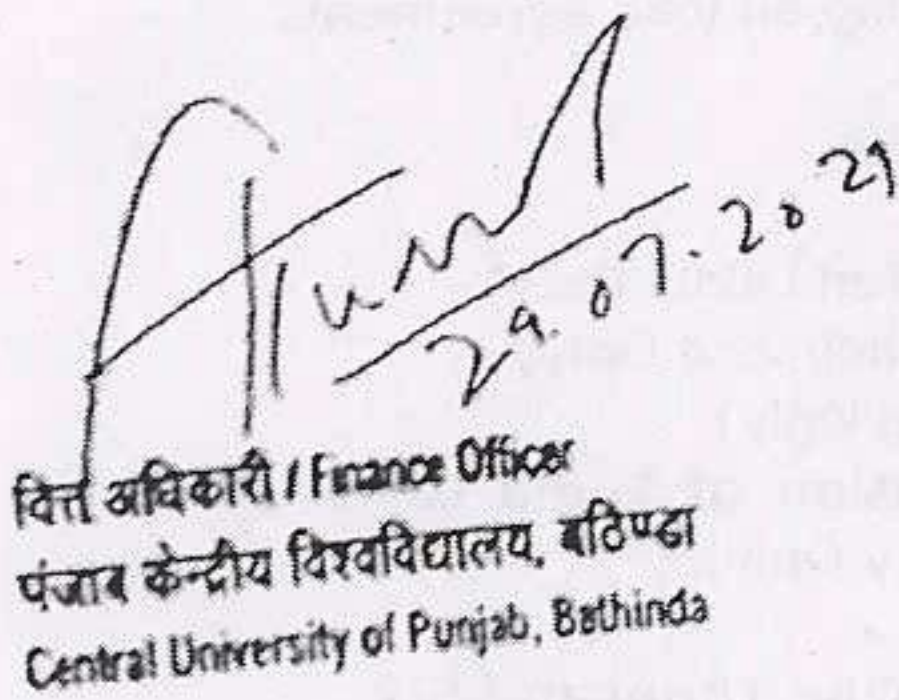 29.07.2021
वित्त अधिकारी / Finance Officer
पंजाब केन्द्रीय विश्वविद्यालय, बठिण्डा
Central University of Punjab, Bathinda